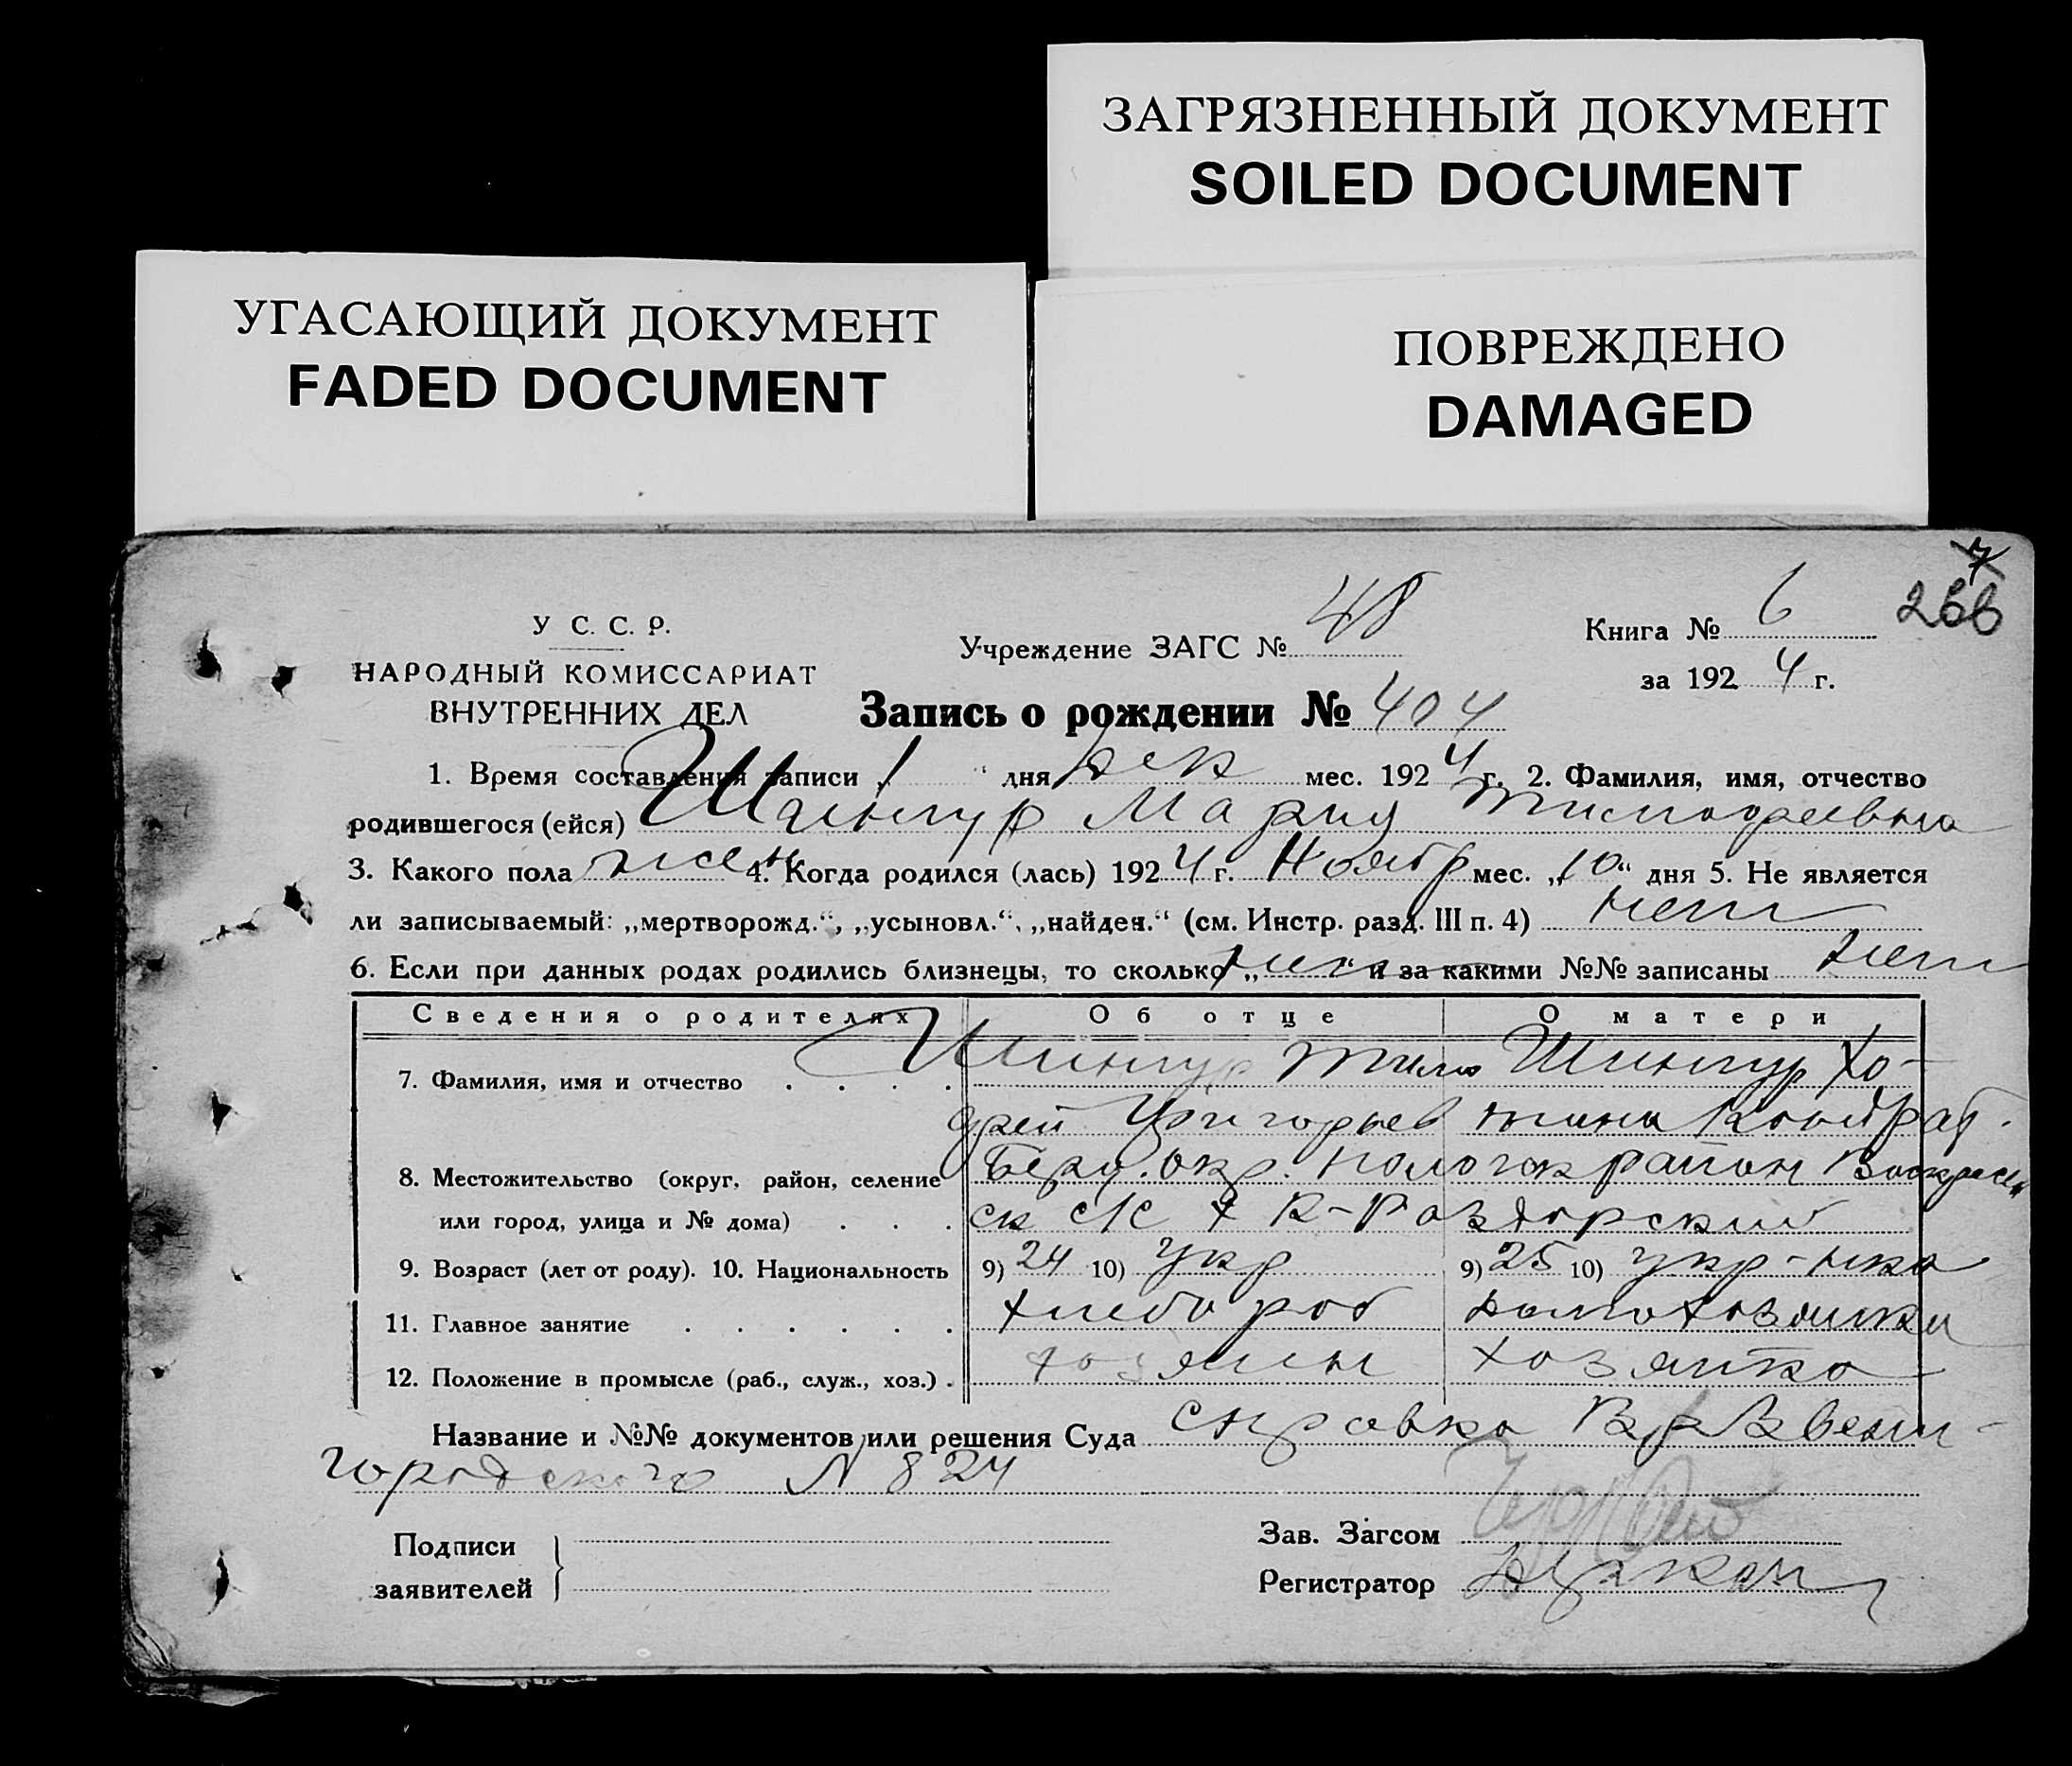 ЗАГРЯЗНЕННЫЙ ДОКУМЕНТ
SOILED DOCUMENT
УГАСАЮЩИЙ ДОКУМЕНТ
FADED DOCUMENT
ПОВРЕЖДЕНО
DAMAGED
У С. С. Р.
НАРОДНЫЙ КОМИССАРИАТ
ВНУТРЕННИХ ДЕЛ
Учреждение ЗАГС № 48
Книга № 6
за 1924 г.
Запись о рождении № 404
1. Время составления записи 1 " дня дек мес. 1924 г. 2. Фамилия, имя, отчество
родившегося (ейся) Мария Тимофеевна
3. Какого пола жен 4. Когда родился (лась) 1924 г. Ноябр мес. „10" дня 5. Не является
ли записываемый: „мертворожд.", „усыновл.", „найден." (см. Инстр. разд. III п. 4) нет
6. Если при данных родах родились близнецы, то сколько „нет" и за какими №№ записаны нет
Сведения о родителях Об отце О матери
7. Фамилия, имя и отчество Шингур Тимо Шингур Хо-
фей Григорьев тина Кондрат.
8. Местожительство (округ, район, селение Берд. окр. район
или город, улица и № дома) ск с/с х К-Раздорский
9. Возраст (лет от роду). 10. Национальность 9) 24 10) укр 9) 25 10) укр-нка
11. Главное занятие хлебороб домохозяйка
12. Положение в промысле (раб., служ., хоз.) хозяин хозяйка
Название и №№ документов или решения Суда справка
городского N 824
Подписи
заявителей
Зав. Загсом
Регистратор